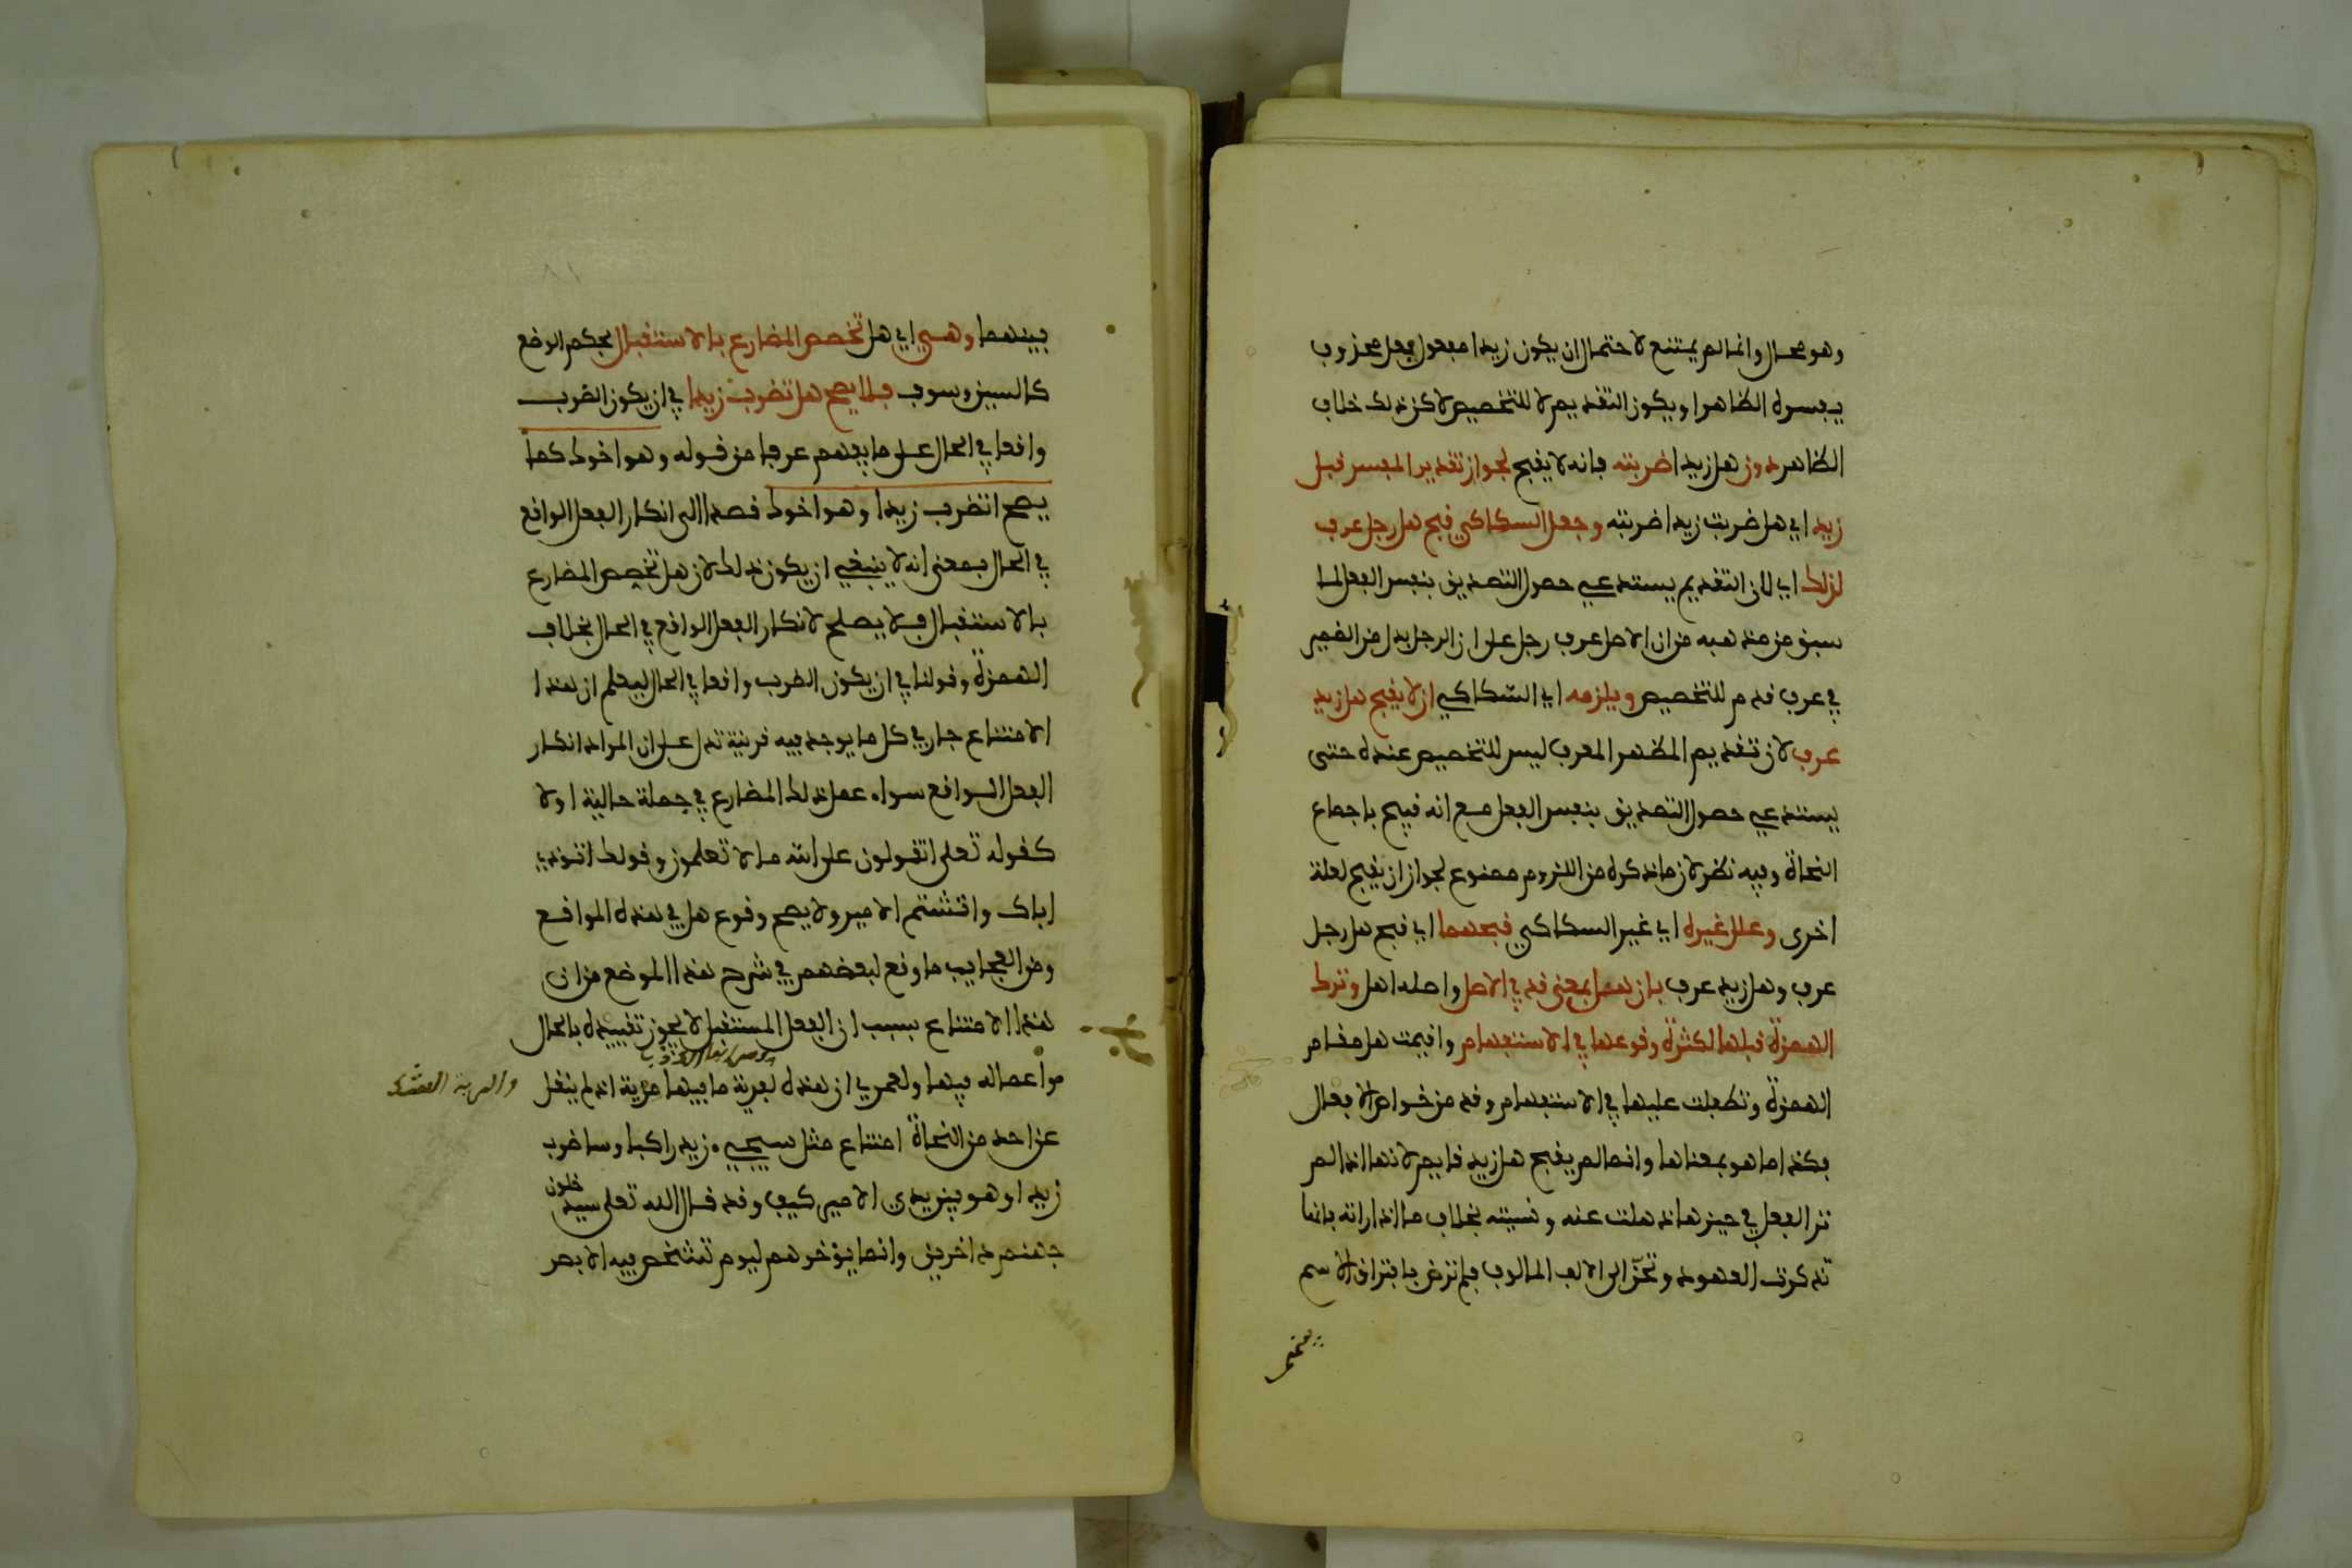 وهو محال وانما لم يمتنع لاحتمال ان يكون زيدا مفعول فعل محذوف
يفسره الظاهر او يكون التقديم لا للتخصيص لاكن ذلك خلاف
الظاهر دون هل زيدا ضربته فانه لا يقبح لجواز تقدير المفسر قبل
زيد اي هل ضربت زيدا ضربته وجعل السكاكي قبح هل رجل عرف
لذلك اي لان التقديم يستدعي حصول التصديق بنفس الفعل لما
سبق من مذهبه من ان الاصل عرف رجل على ان الرجل بدل من الضمير
في عرف قدم للتخصيص ويلزمه اي السكاكي ان لا يقبح هل زيد
عرف لان تقديم المظهر المعرف ليس للتخصيص عنده حتى
يستدعي حصول التصديق بنفس الفعل مع انه قبيح باجماع
النحاة وفيه نظر لان ما ذكره من اللزوم ممنوع لجواز ان يقبح لعلة
اخرى وعلل غيره اي غير السكاكي قبحهما اي قبح هل رجل
عرف وهل زيد عرف بان هل بمعنى قد في الاصل واصله اهل وترك
الهمزة قبلها لكثرة وقوعها في الاستفهام واقيمت هل مقام
الهمزة وتطفلت عليها في الاستفهام وقد من خواص الافعال
فكذا ما هو بمعناها وانما لم يقبح هل زيد قايم لانها اذا لم
تر الفعل في حيزها ذهلت عنه ونسيته بخلاف ما اذا راته فانها
تذكرت العهود وتحن الى الالف المالوف فلم ترض بافتراق الاسم
بينهما
بينهما وهي اي هل تخصص المضارع بالاستقبال بحكم الوضع
كالسين وسوف فلا يصح هل تضرب زيدا في ان يكون الضرب
واقعا في الحال على ما يفهم عرفا من قوله وهو اخوك كما
يصح اتضرب زيدا وهو اخوك قصدا الى انكار الفعل الواقع
في الحال بمعنى انه لا ينبغي ان يكون ذلك لان هل تخصص المضارع
بالاستقبال فلا يصلح لانكار الفعل الواقع في الحال بخلاف
الهمزة وقولنا في ان يكون الضرب واقعا في الحال ليعلم ان هذا
الامتناع جار في كل ما يوجد فيه قرينة تدل على ان المراد انكار
الفعل الواقع سواء عمل ذلك المضارع في جملة حالية او لا
كقوله تعلى اتقولون على الله ما لا تعلمون وقولك اتوذي
اباك واتشتم الامير ولا يصح وقوع هل في هذه المواقع
ومن العجايب ما وقع لبعضهم في شرح هذا الموضع من ان
هذا الامتناع بسبب ان الفعل المستقبل لا يجوز تقييده بالحال
واعماله فيها ولعمري ان هذه لفرية ما فيها مرية اذ لم ينقل
عن احد من النحاة امتناع مثل سيجيء زيد راكبا وساضرب
زيدا وهو بين يدي الامير كيف وقد قال الله تعلى سيدخلون
جهنم داخرين وانما يؤخرهم ليوم تشخص فيه الابصر